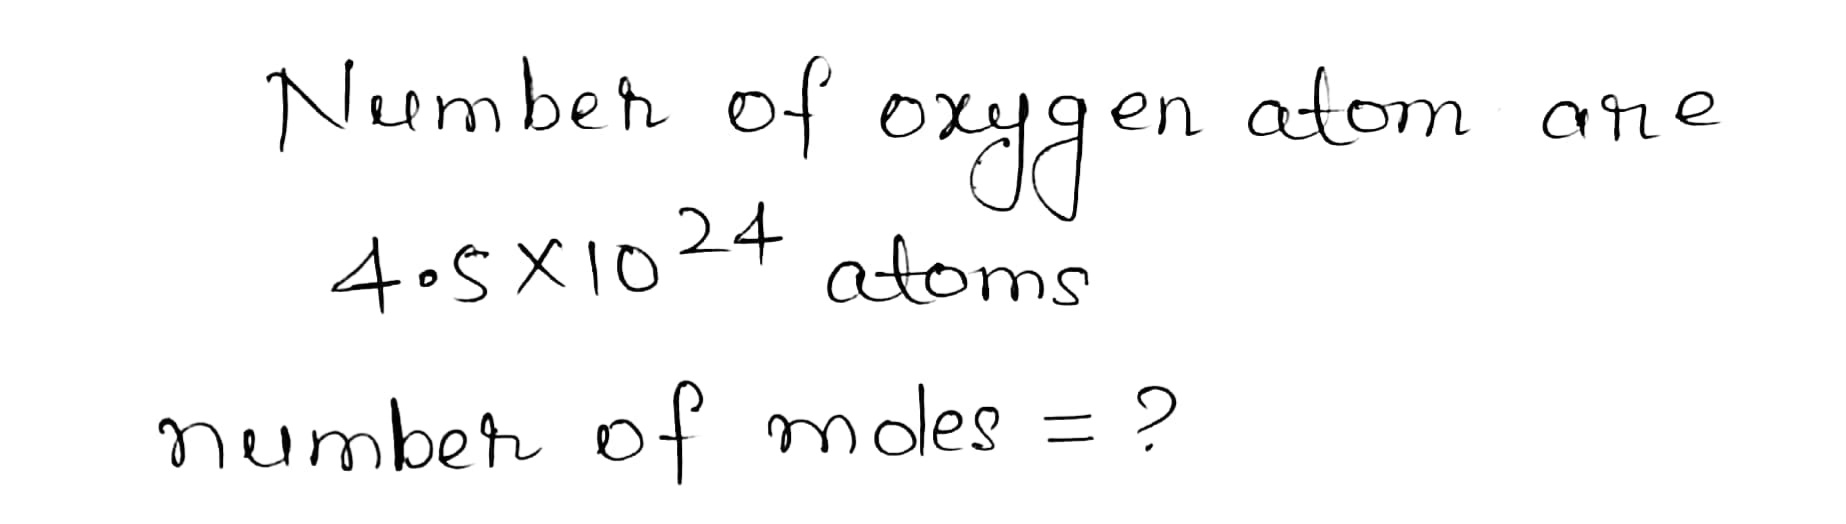 Number of oxygen atom are
4.5×10²⁴ atoms
number of moles = ?